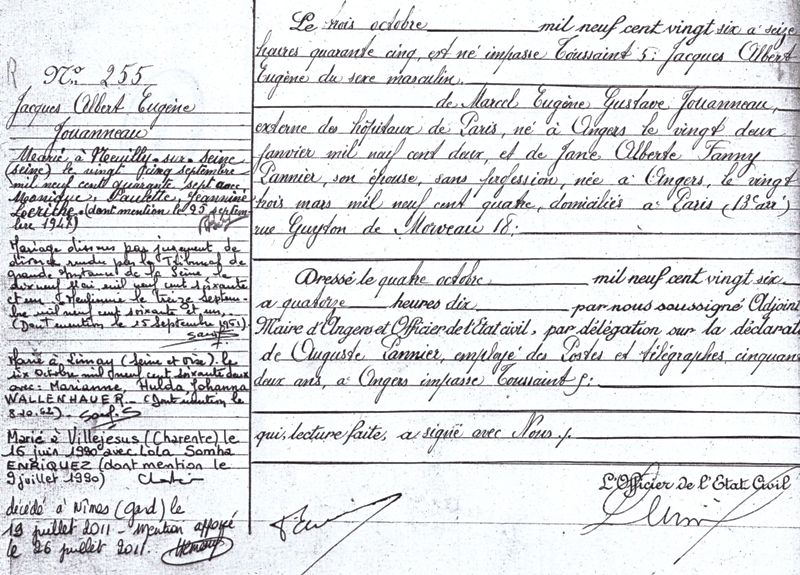 R
N° 255
Jacques Albert Eugène
Jouanneau
Marié à Neuilly-sur-Seine
(Seine) le vingt cinq septembre
mil neuf cent quarante sept avec
Monique, Paulette, Jeannine
Leriche (dont mention le 25 septem-
bre 1947)
Mariage dissous par jugement de
divorce rendu par le Tribunal de
grande Instance de la Seine, le
dix neuf Mai mil neuf cent soixante
et un le treize Septem-
bre mil neuf cent soixante et un.
(Dont mention le 15 Septembre 1961)
Marié à Limay (Seine et Oise) le
six Octobre mil neuf cent soixante deux
avec: Marianne, Hulda Johanna
WALLENHAUER. (Dont mention le
8.10.62)
Marié à Villejesus (Charente) le
16 juin 1990 avec Lola Somha
ENRIQUEZ (dont mention le
9 juillet 1990)
décédé à Nîmes (Gard) le
19 juillet 2011 - Mention apposé
le 26 juillet 2011.
Le trois octobre mil neuf cent vingt six à seize
heures quarante cinq, est né impasse Toussaint 5: Jacques Albert
Eugène du sexe masculin.
de Marcel Eugène Gustave Jouanneau,
externe des hôpitaux de Paris, né à Angers le vingt deux
janvier mil neuf cent deux, et de Jane Alberte Fanny
Pannier, son épouse, sans profession, née à Angers, le vingt
trois mars mil neuf cent quatre, domiciliés à Paris (13e arr)
rue Guyton de Morveau 18:
Dressé le quatre octobre, mil neuf cent vingt six
à quatorze heures dix par nous soussigné Adjoint
Maire d'Angers et Officier de l'Etat civil, par délégation sur la déclarati
de Auguste Pannier, employé des Postes et télégraphes, cinquan
deux ans, à Angers impasse Toussaint 5:
qui, lecture faite, a signé avec Nous ./.
L'Officier de l'Etat Civil